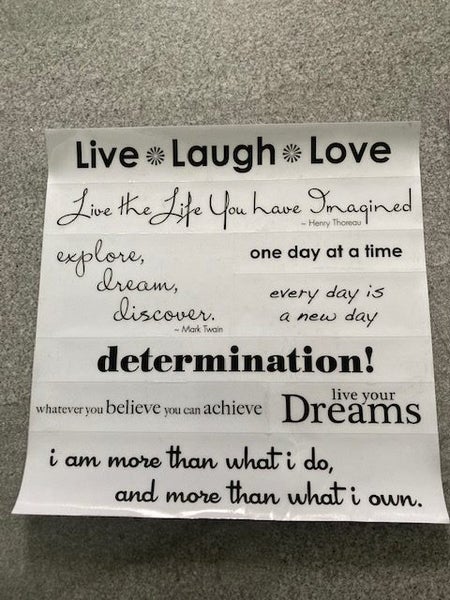 Live Laugh Love
Live the Life You have Imagined
~ Henry Thoreau
explore,
dream,
discover.
~ Mark Twain
one day at a time
every day is
a new day
determination!
whatever you believe you can achieve
live your
Dreams
i am more than what i do,
and more than what i own.